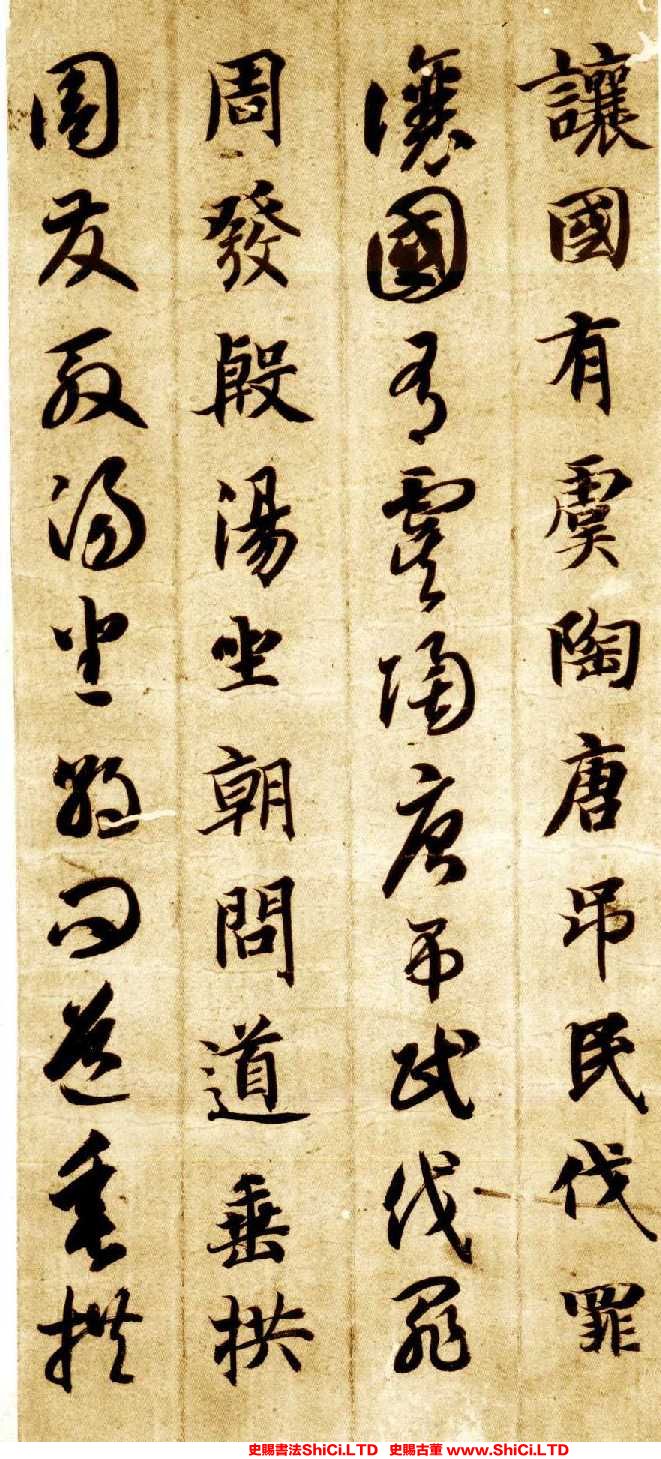 讓國有虞陶唐吊民伐罪
讓國有虞陶唐吊民伐罪
周發殷湯坐朝問道垂拱
周發殷湯坐朝問道垂拱
史賜書法ShiCi.LTD 史賜古董 www.ShiCi.LTD